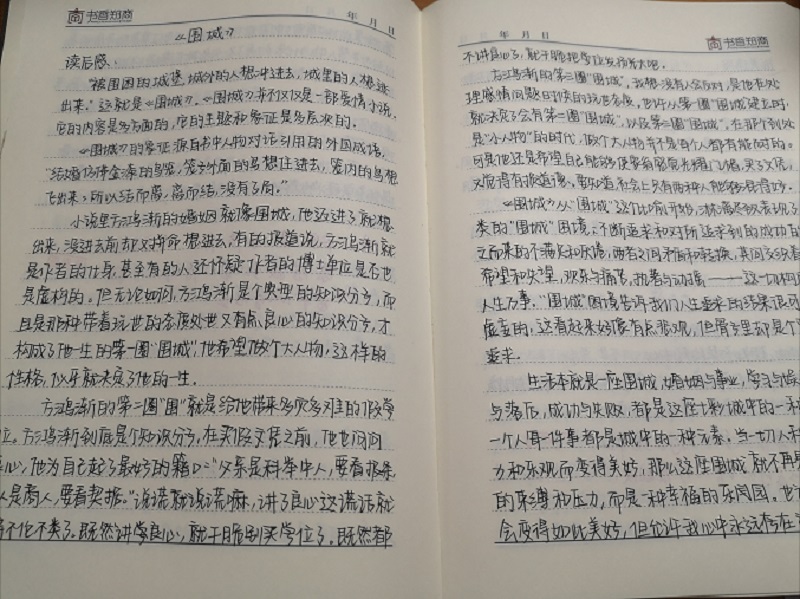 书香知商
年 月 日
《围城》
读后感、
"被围困的城堡,城外的人想冲进去,城里的人想逃
出来."这就是《围城》.《围城》并不仅仅是一部爱情小说,
它的内容是多方面的,它的主题和象征是多层次的.
《围城》的象征源自书中人物对话引用的外国成语,
"结婚仿佛金漆的鸟笼,笼子外面的鸟想住进去,笼内的鸟想
飞出来,所以结而离,离而结,没有了局."
小说里方鸿渐的婚姻就像围城,他这进了就想
出来,没进去前却又拼命想进去,有的报道说,方鸿渐就
是作者的化身,甚至有的人还怀疑作者的博士单位是否也
是虚构的.但无论如何,方鸿渐是个典型的知识分子,而
且是那种带着玩世的态度处世又有点良心的知识分子,才
构成了他一生的第一圈"围城"他希望做个大人物,这样的
性格,似乎就决定了他的一生.
方鸿渐的第二圈"围"就是给他带来多灾多难的假学
位.方鸿渐到底是个知识分子.在买假文凭之前,他也问问
良心,他为自己起了最好的籍口"父亲是科举中人,要看报条
人是商人,要看契据."说谎就说谎嘛,讲了良心这谎话就
不伦不类了.既然讲学良心,就干脆别买学位了.既然都
年 月 日
书香知商
不讲良心了,就干脆把学位发扬光大吧.
方鸿渐的第三圈"围城",我想没有人会反对,是他在处
理感情问题时候的玩世态度,也许从第一圈"围城"建立时,
就决定了会有第二圈"围城",以及第三圈"围城",在那个到处
是"小人物"的时代,做个大人物并不是每个人都有能耐的.
可是他还是希望自己能够
又觉得有损道德,要知道社会上只有两种人能够活得好.
《围城》从"围城"这个比喻开始,淋漓尽致表现了
类的"围城"困境:不断追求和对所追求到的成功
之而来的不满足和厌烦,两者之间矛盾和转换,其间交织着
希望和失望,欢乐与痛苦,执着与动摇——这一切构
人生万事."围城"困境告诉我们人生追求的结果很可
虚妄的,这看起来好像有点悲观,但骨子里却是个
追求.
生活本就是一座围城,婚姻与事业,学习与娱
与落后,成功与失败,都是这座七彩城中的一
一个人每一件事都是城中的一种元素.当一切
力和乐观而变得美好,那么这座围城就不再是
的束缚和压力,而是一种幸福的乐园.
会变得如此美好,但允许我心中永远存在